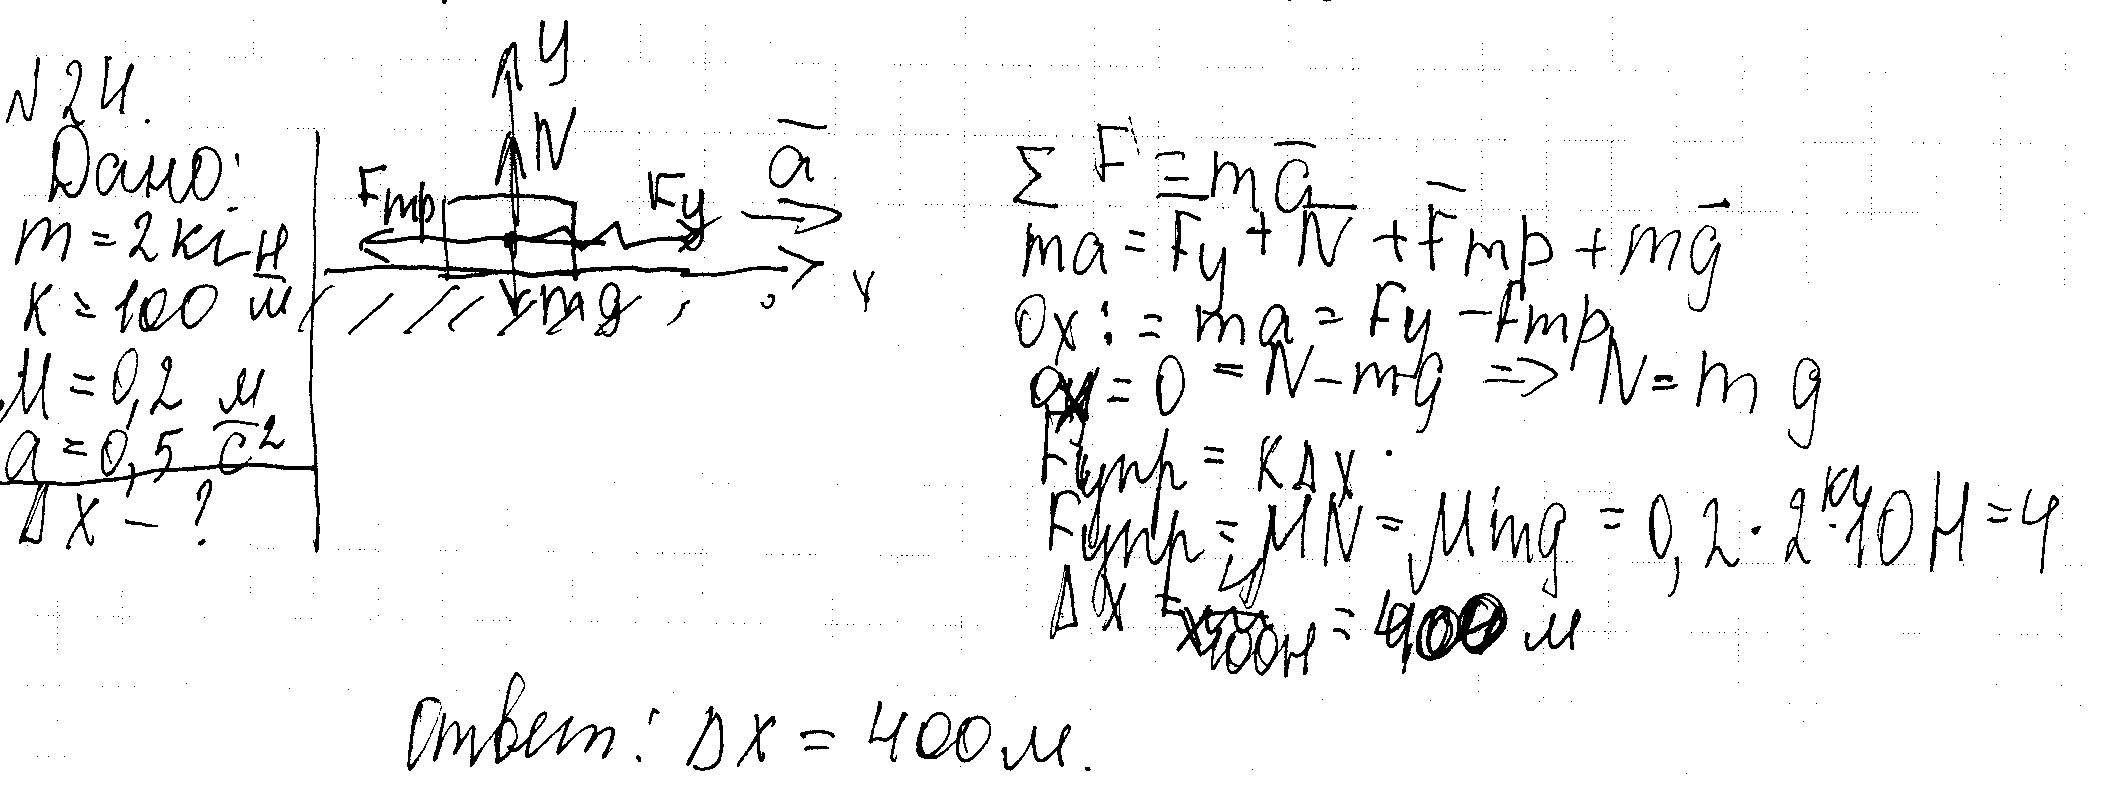 N24.
Дано:
m = 2 кг
к = 100 Н/м
M = 0,2
a = 0,5 м/с²
Δx - ?
y
N
Fтр
Fу
a
mg
0
x
Σ F = ma
ma = Fу + N + Fтр + mg
Ox: = ma = Fу - Fтр
Oy = 0 = N - mg => N = mg
Fупр = кΔx
Fупр = μN = μmg = 0,2 · 2 кг · 10 Н = 4
Δx = 4/100Н = 400 м
Ответ: Δx = 400 м.